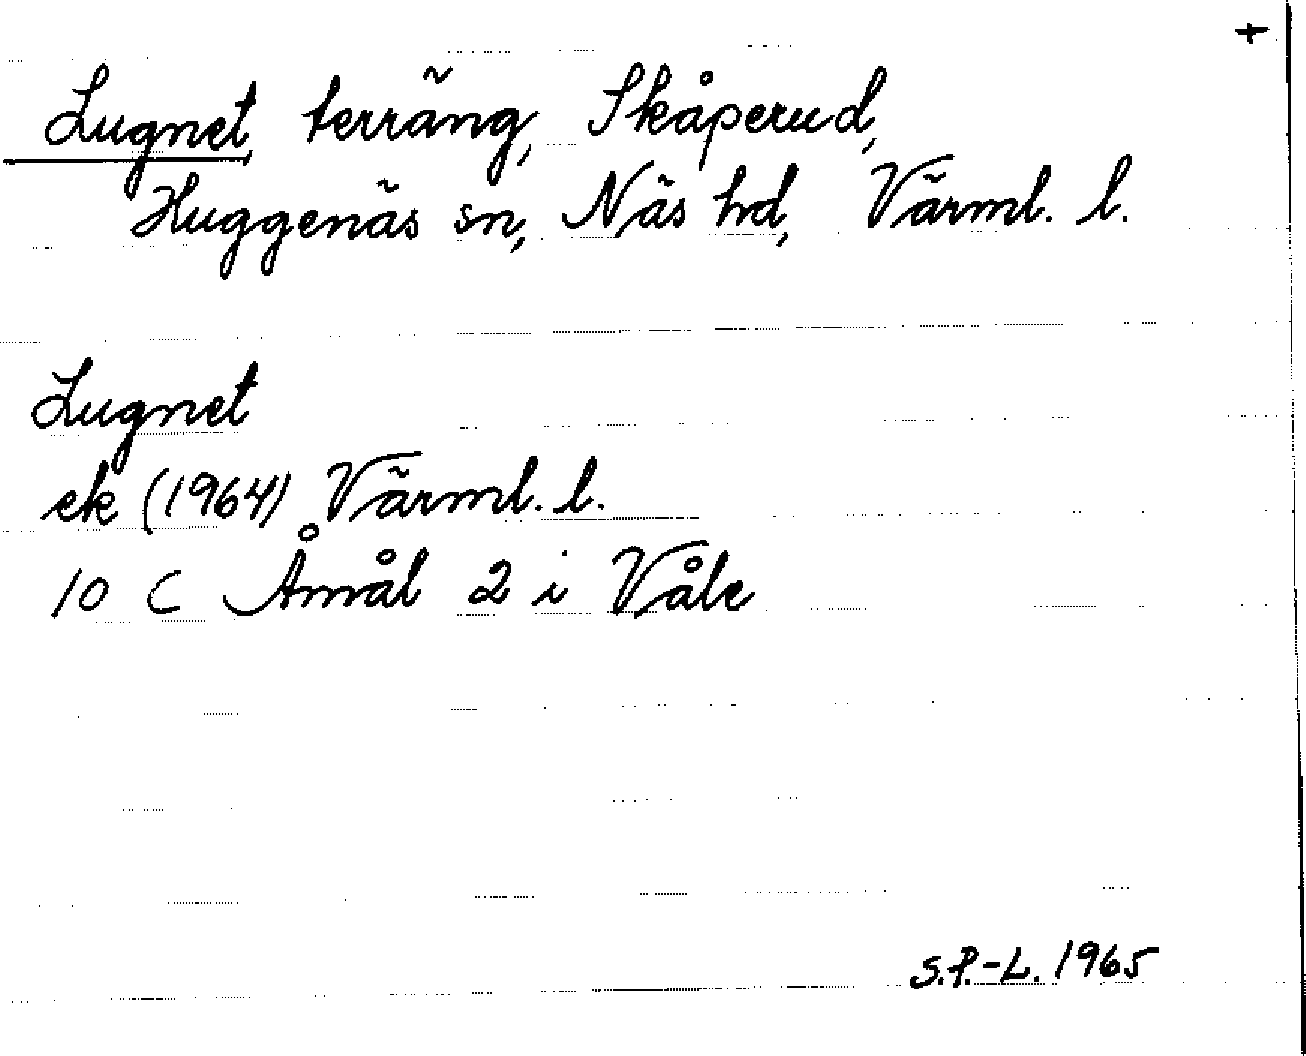 +
Lugnet, terräng, Skåperud,
Huggenäs sn, Näs hd, Värml. l.
Lugnet
ek (1964) Värml. l.
10 C Åmål 2 i Våle
S.P.-L. 1965